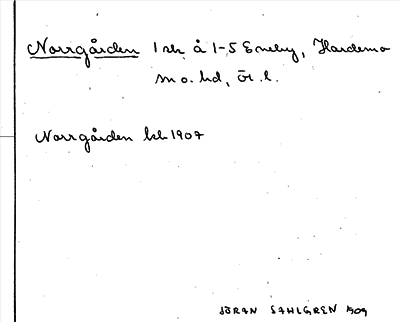 Norrgården 1 sk å 1-5 Eneby, Hardemo
sn o. hd, Ör. l.
Norrgården kk 1907
JÖRAN SAHLGREN 1909